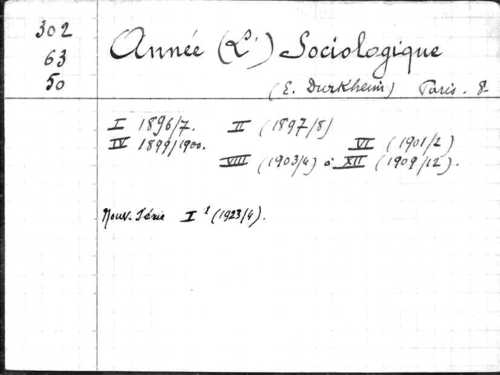 302
63
50
Année (L') Sociologique
(E. Durkheim) Paris. 8.
I 1896/7. II (1897/8)
IV 1899/1900. VI (1901/2)
VIII (1903/4) à XII (1909/12).
Nouv. Série I 1 (1923/4).